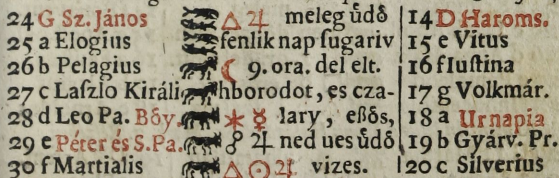 24 G Sz. János △ ♃ meleg údô 14 D Haroms.
25 a Elogius fenlik nap ſugariv 15 e Vitus
26 b Pelagius ☾ 9. ora. del elt. 16 f Iuſtina
27 c Laſzlo Királi hborodot, es cza- 17 g Volkmár.
28 d Leo Pa. Bôy. ✶ ☿ lary, eßôs, 18 a Urnapia
29 e Péter és S. Pa. ☍ ♃ ned ues údô 19 b Gyárv. Pr.
30 f Martialis △ ☉ ♃ vizes. 20 c Silverius